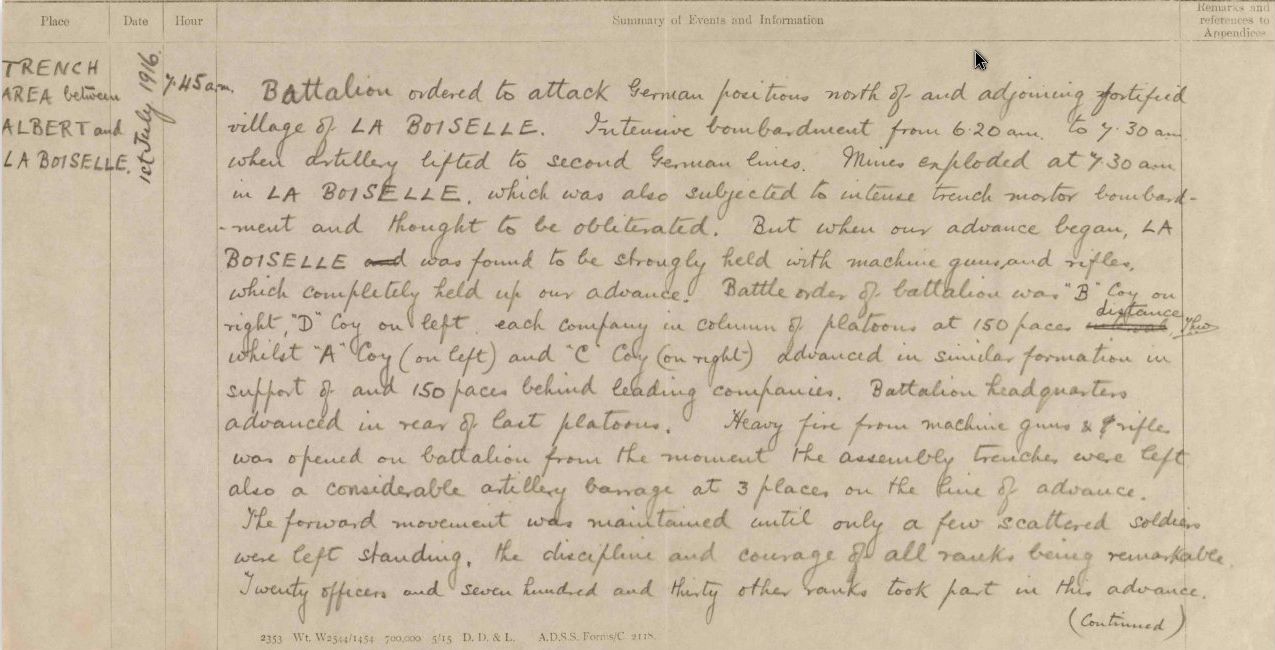 Place Date Hour Summary of Events and Information Remarks and references to Appendices
TRENCH
AREA between
ALBERT and
LA BOISELLE.
1st July 1916.
7.45 a.m.
Battalion ordered to attack German positions north of and adjoining fortified
village of LA BOISELLE. Intensive bombardment from 6.20 am. to 7.30 am
when artillery lifted to second German lines. Mines exploded at 7.30 am
in LA BOISELLE, which was also subjected to intense trench mortar bombard-
-ment and thought to be obliterated. But when our advance began, LA
BOISELLE and was found to be strongly held with machine guns and rifles,
which completely held up our advance. Battle order of battalion was "B" Coy on
right, "D" Coy on left each company in column of platoons at 150 paces distance,
whilst "A" Coy (on left) and "C" Coy (on right) advanced in similar formation in
support of and 150 paces behind leading companies. Battalion headquarters
advanced in rear of last platoons. Heavy fire from machine guns & rifles
was opened on battalion from the moment the assembly trenches were left
also a considerable artillery barrage at 3 places on the line of advance.
The forward movement was maintained until only a few scattered soldiers
were left standing, the discipline and courage of all ranks being remarkable.
Twenty officers and seven hundred and thirty other ranks took part in this advance.
(Continued)
2353 Wt. W2544/1454 700,000 5/15 D. D. & L. A.D.S.S. Forms/C. 2118.